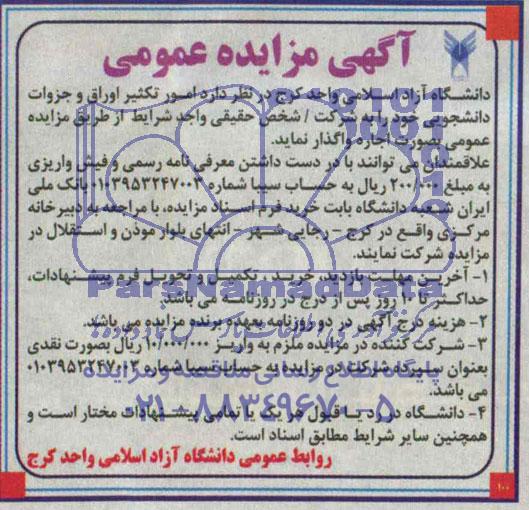 آگهی مزایده عمومی
دانشگاه آزاد اسلامی واحد کرج در نظر دارد امور تکثیر اوراق و جزوات
دانشجویی خود را به شرکت / شخص حقیقی واجد شرایط از طریق مزایده
عمومی بصورت اجاره واگذار نماید.
علاقمندان می توانند با در دست داشتن معرفی نامه رسمی و فیش واریزی
به مبلغ ۲۰۰/۰۰۰ ریال به حساب سیبا شماره ۰۱۰۳۹۵۳۲۴۷۰۰۳ بانک ملی
ایران شعبه دانشگاه بابت خرید فرم اسناد مزایده، با مراجعه به دبیرخانه
مرکزی واقع در کرج - رجایی شهر - انتهای بلوار موذن و استقلال در
مزایده شرکت نمایند.
۱- آخرین مهلت بازدید، خرید، تکمیل و تحویل فرم پیشنهادات،
حداکثر تا ۱۰ روز پس از درج در روزنامه می باشد.
ParsNamadData
۲- هزینه درج آگهی در دو روزنامه بعهده برنده مزایده می باشد.
۳- شرکت کننده در مزایده ملزم به واریز ۱۰/۰۰۰/۰۰۰ ریال بصورت نقدی
بعنوان سپرده شرکت در مزایده به حساب سیبا شماره ۰۱۰۳۹۵۳۲۴۷۰۰۳
می باشد.
پایگاه اطلاع رسانی مناقصه و مزایده
۰۲۱-۸۸۳۴۹۶۷۰-۵
۴- دانشگاه در رد یا قبول هر یک یا تمامی پیشنهادات مختار است و
همچنین سایر شرایط مطابق اسناد است.
روابط عمومی دانشگاه آزاد اسلامی واحد کرج
۱۰۰